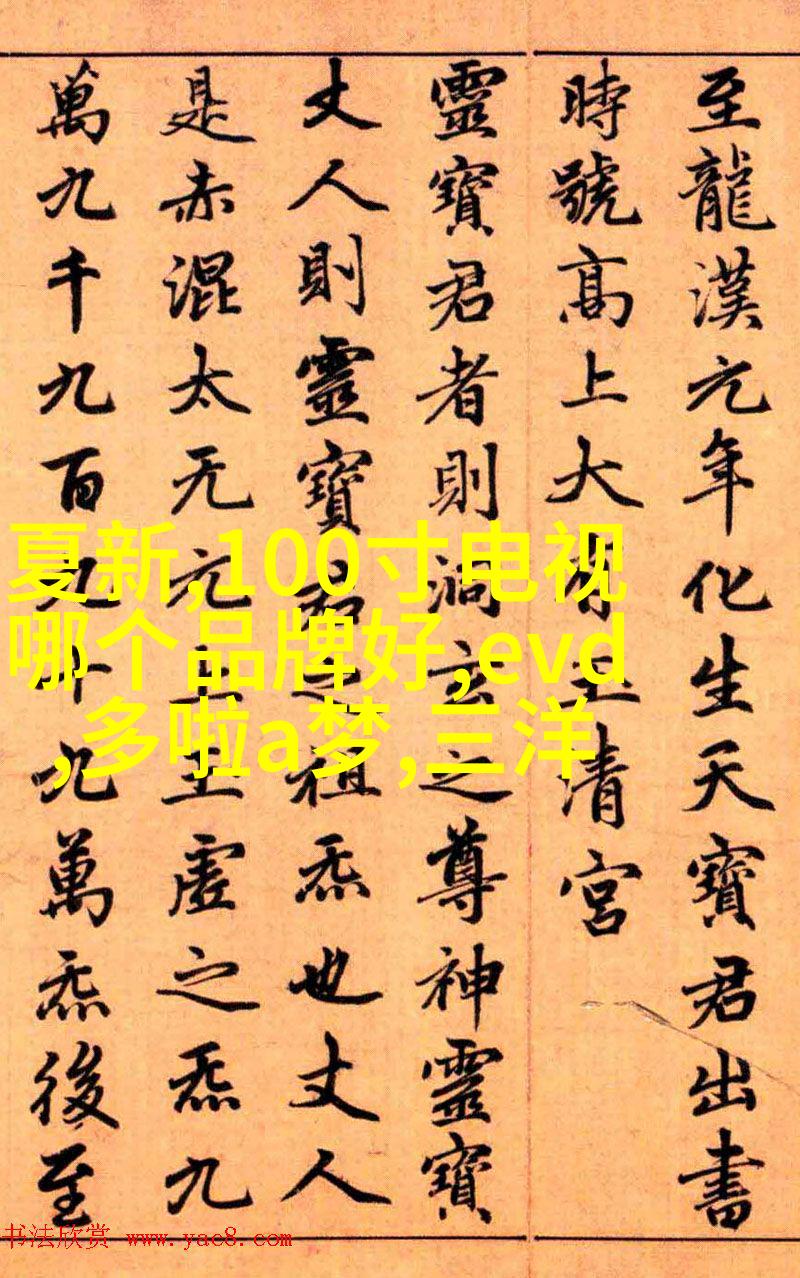 至龍漢元年化生天寶君出書
時號高上大有玉清宮
靈寶君者則洞玄之尊神靈寶
丈人則靈寶君之祖炁也丈人
是赤混太无元上玉虛之炁九
萬九千九百九十九萬炁後至
夏新,100寸电视
哪个品牌好,evd
,多啦a梦,三洋
书法欣赏 www.yac8.com